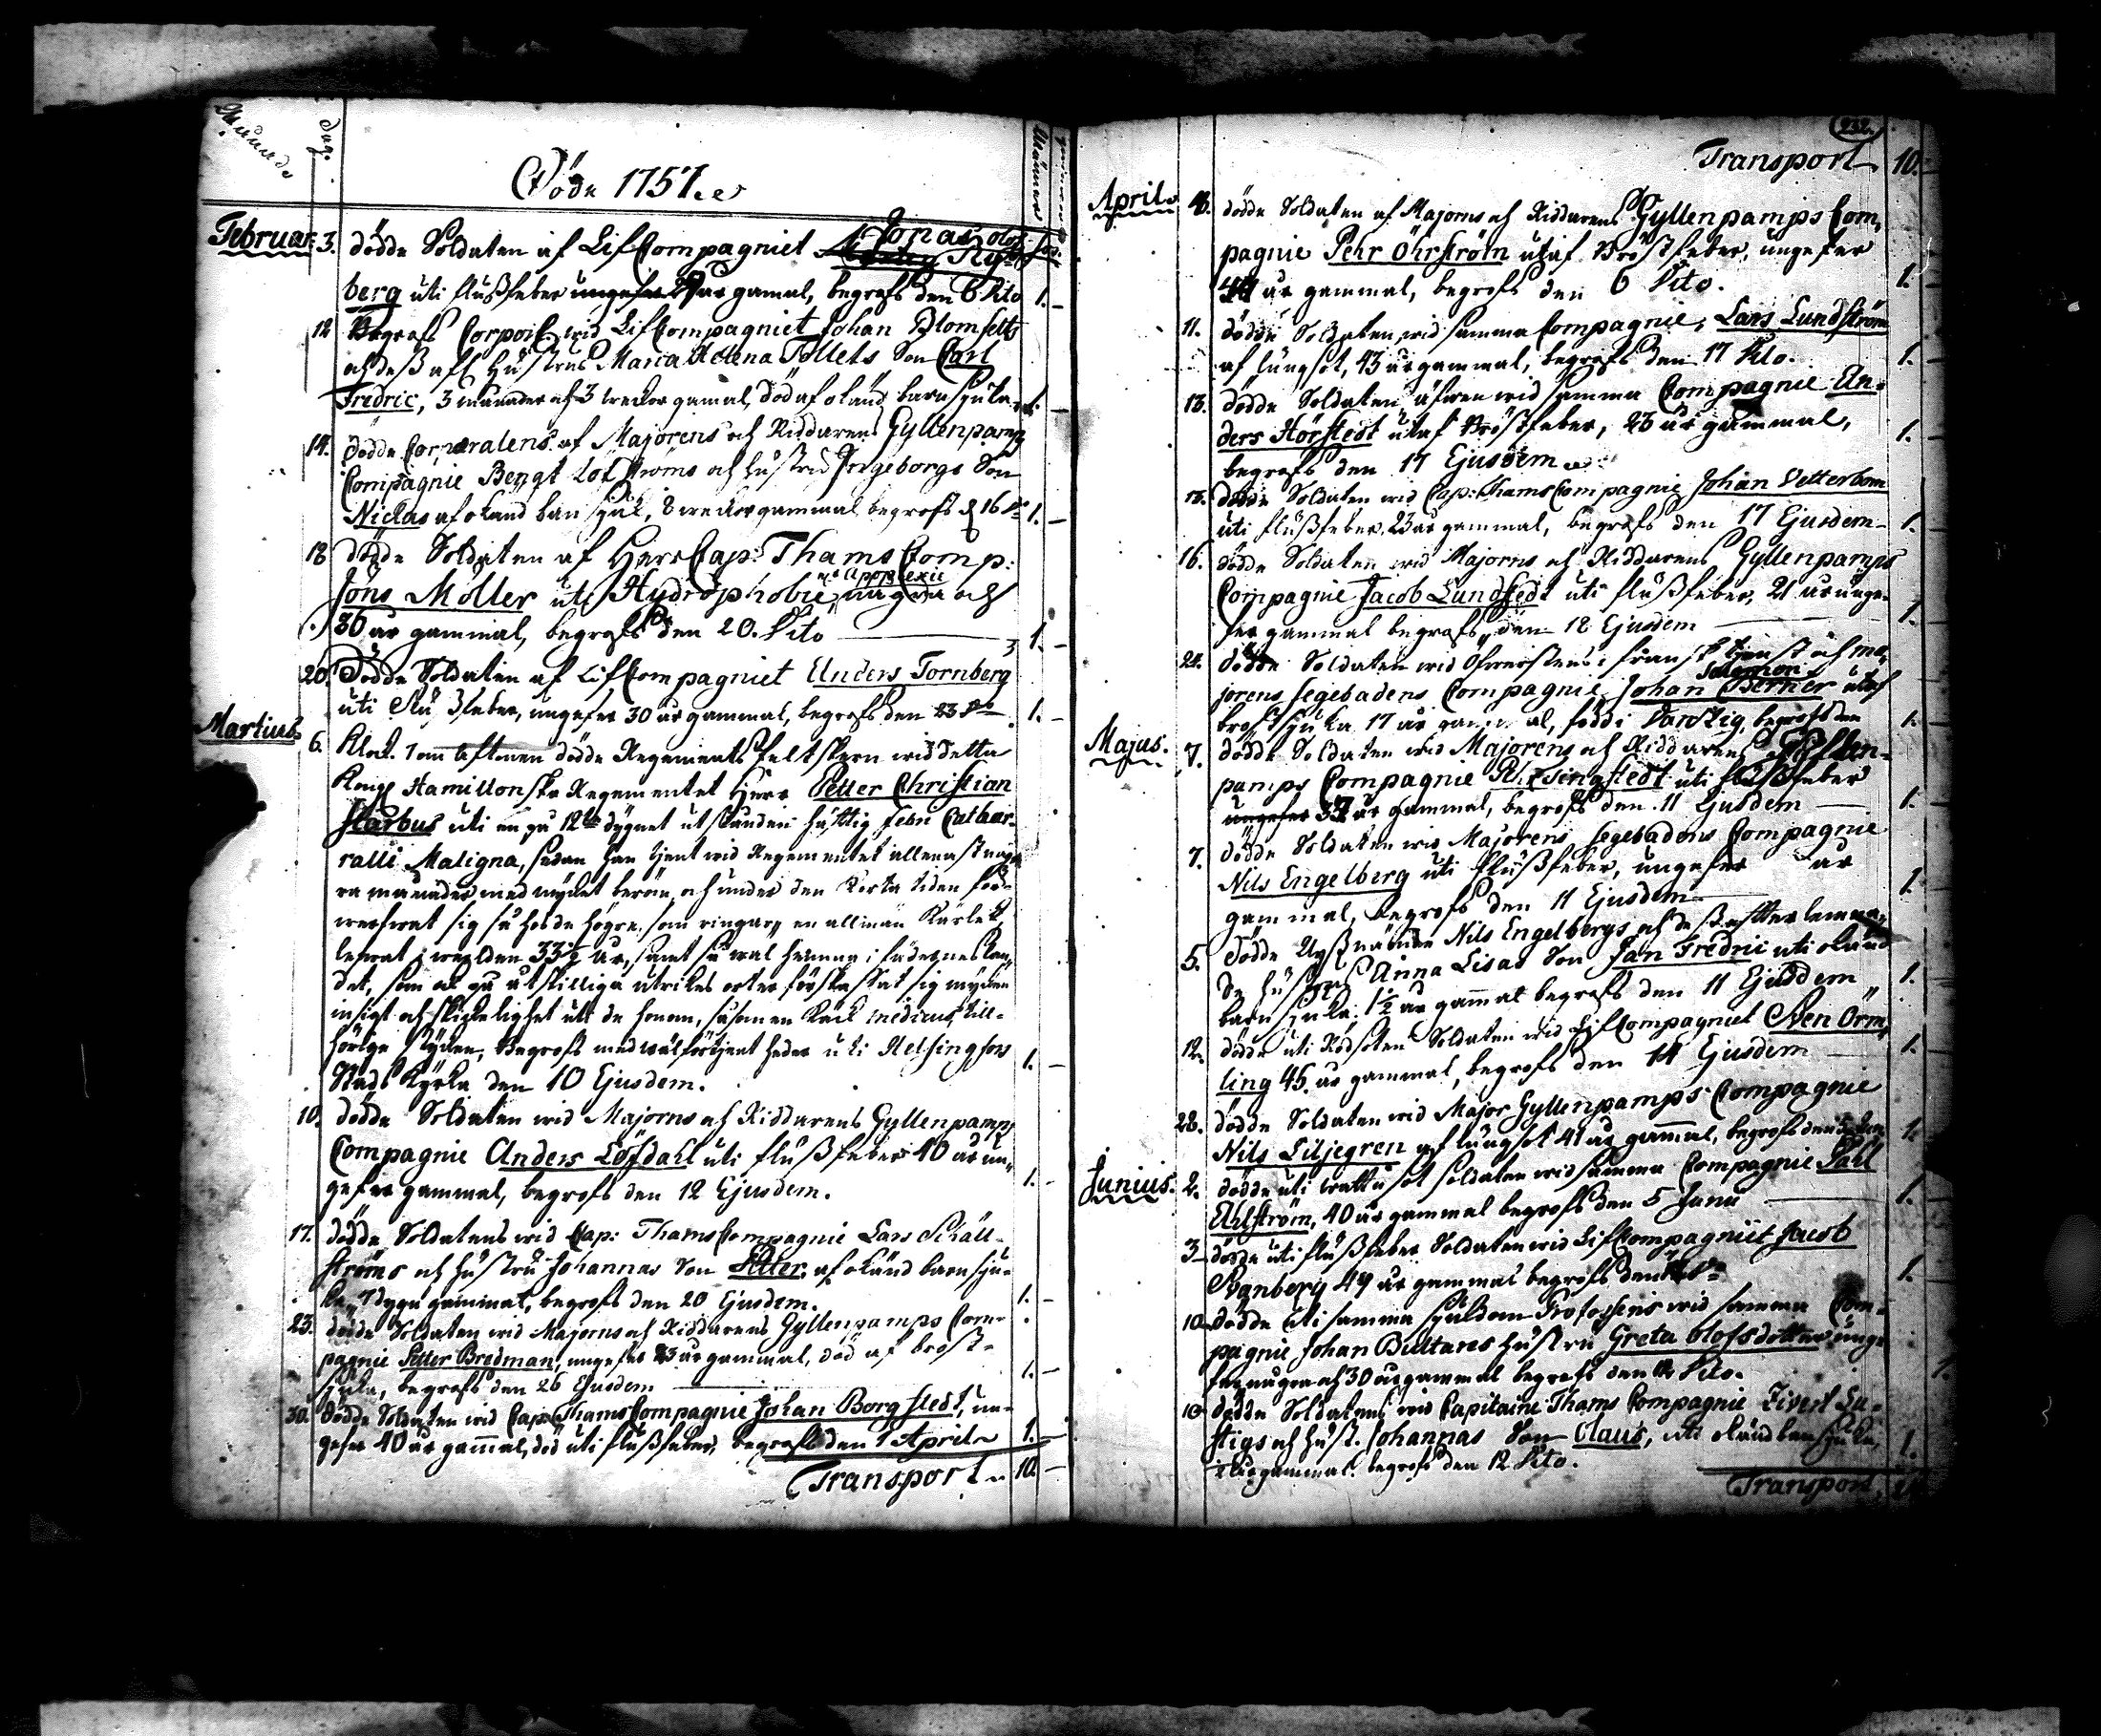 Månade
dag.
Döde 1757.
Februar. 3. dödde Soldaten af LifCompagniet Jonas
berg uti flußfeber ungefer år gamal, begrofs den 6 dito 1.
12 Begrofs Corporl wid LifCompagniet Johan Blomfelts
och deß afl hustrus Maria Helena Tollets Son Carl
Fredric, 3 månader och 3 weckor gamal, död af okänd barnsjuka 1.
14. dödde Corporalens af Majorens och Riddarens Gyllenpamps
Compagnie Bengt Löfströms och hustru Ingeborgs Son
Niclas af okänd barnsjuk, 8 weckor gammal begrofs d 16 do 1.
18 dödde Soldaten af Herr Cap: Thams Comp:
Jöns Möller uti Hydrophobie, Apoplexie några och
36 år gammal, begrofs den 20. dito 1.
20. Dödde Soldaten af LifCompagniet Anders Tornberg
uti Flußfeber, ungefer 30 år gammal, begrofs den 23 do 1.
Martius. 6. Klock. 1 om Aftonen dödde Regements feltskern wid detta
Kongl Hamiltonska Regementet Herr Petter Christian
Starbus uti en på 12te dygnet utstånden häftig febri Cathar-
ralli Maligna, sedan han tjent wid Regementet allenast någ-
ra månader med mycket beröm, och under den korta tiden för-
werfwat sig så hos de högre, som ringare en allmän kärlek,
lefwat i werlden 33½ år, samt så wäl hemma i fädernes lan-
det, som ock på åtskilliga utrikes orter förskaffat sig mycken
insigt och skickelighet uti de honom, såsom en Räck medicus, till-
hörige stycken, Begrofs med wälförtjent heder uti Helsingfors
Stads Kyrka den 10 Ejusdem. 1.
10. dödde Soldaten wid Majorns och Riddarens Gyllenpamps
Compagnie Anders Löfdahl uti flußfeber 40 år un-
gefer gammal, begrofs den 12 Ejusdem. 1.
17. dödde Soldatens wid Cap: Thams Compagnie Lars Schäll-
ströms och hustru Johannas Son Petter af okänd barnsju-
ka, 7 dygn gammat, begrofs den 20 Ejusdem. 1.
23. dödde Soldaten wid Majorns och Riddarens Gyllenpamps Com-
pagnie Petter Bredman, ungefer 23 år gammal, död af bröst-
sjuka, begrofs den 26 Ejusdem 1.
30. dödde Soldaten wid Cap: Thams Compagnie Johan Borgstedt, un-
gefer 40 år gamal, död uti flußfeber, begrofs den 1 April 1.
Transport 10.
232.
Transport 10.
April dödde Soldaten af Majorns och Riddarens Gyllenpamps Com-
pagnie Pehr Öhrström utaf Bröstfeber, ungefer
år gammal, begrofs den 6 dito. 1.
11. dödde Soldaten wid samma Compagnie, Lars Lundström
af lungsot, 43 år gammal, begrofs den 17 dito. 1.
13. dödde Soldaten äfwen wid samma Compagnie An-
ders Hörstedt utaf Bröstfeber, 23 år gammal, 1.
begrofs den 17 Ejusdem
dödde Soldaten wid Cap: Thams Compagnie Johan Vetterbom
uti flußfeber 23 år gammal, begrofs den 17 Ejusdem 1.
16. dödde Soldaten wid Majorns och Riddarens Gyllenpamps
Compagnie Jacob Lundstedt uti flußfeber, 21 år unge-
fer gammal begrofs den 18 Ejusdem 1.
dödde Soldaten wid Öfwerstens i fransk tjenst och ma-
jorens Segebadens Compagnie Johan Salomon Berner utaf
bröstsjuka 17 år gammal, född i Dantzig, begrofs den 1.
Majus. 7. dödde Soldaten wid Majorens och Riddarens Gyllen-
pamps Compagnie Helsingstedt uti flußfeber
ungefer år gammal, begrofs den 11 Ejusdem 1.
7. dödde Soldaten wid Majorens Segebadens Compagnie
Nils Engelberg uti flußfeber, ungefer år
gammal, begrofs den 11 Ejusdem 1.
5. Dödde Nils Engelbergs och deß efterlemna-
de hustrus Anna Lisas Son Jan Fredric uti okänd
barnsjuka 1½ år gamat begrofs den 11 Ejusdem 1.
12. dödde uti Rödsoten Soldaten wid LifCompagniet Sven Örm-
ling 45 år gammal, begrofs den 14 Ejusdem 1.
22. dödde Soldaten wid Major Gyllenpamps Compagnie
Nils Liljegren af lungsot 41 år gamal, begrofs den 1.
Junius. 2. dödde uti wattusot Soldaten wid samma Compagnie Pähl
Ahlström, 40 år gammal begrofs den 5 Junii 1.
3 dödde uti flußfeber Soldaten wid LifCompagniet Jacob
Svanberg 44 år gammal begrofs den do 1.
10 dödde uti samma sjukdom Profossens wid samma Com-
pagnie Johan Bultares hustru Greta Olofsdotter unge-
fer några och 30 år gammal begrofs den 12 dito. 1.
10 dödde Soldatens wid Capitaine Thams Compagnie Zivert Lu-
stigs och hust. Johannas Son Claus, uti okänd barnsjuka,
år gammal. begrofs den 12 dito. 1.
Transport